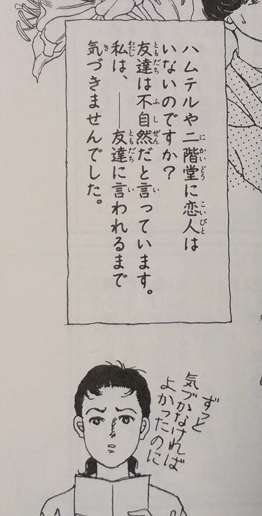 ハムテルや二階堂に恋人は
いないのですか?
友達は不自然だと言っています。
私は、――友達に言われるまで
気づきませんでした。
ずっと
気づかなければ
よかったのに